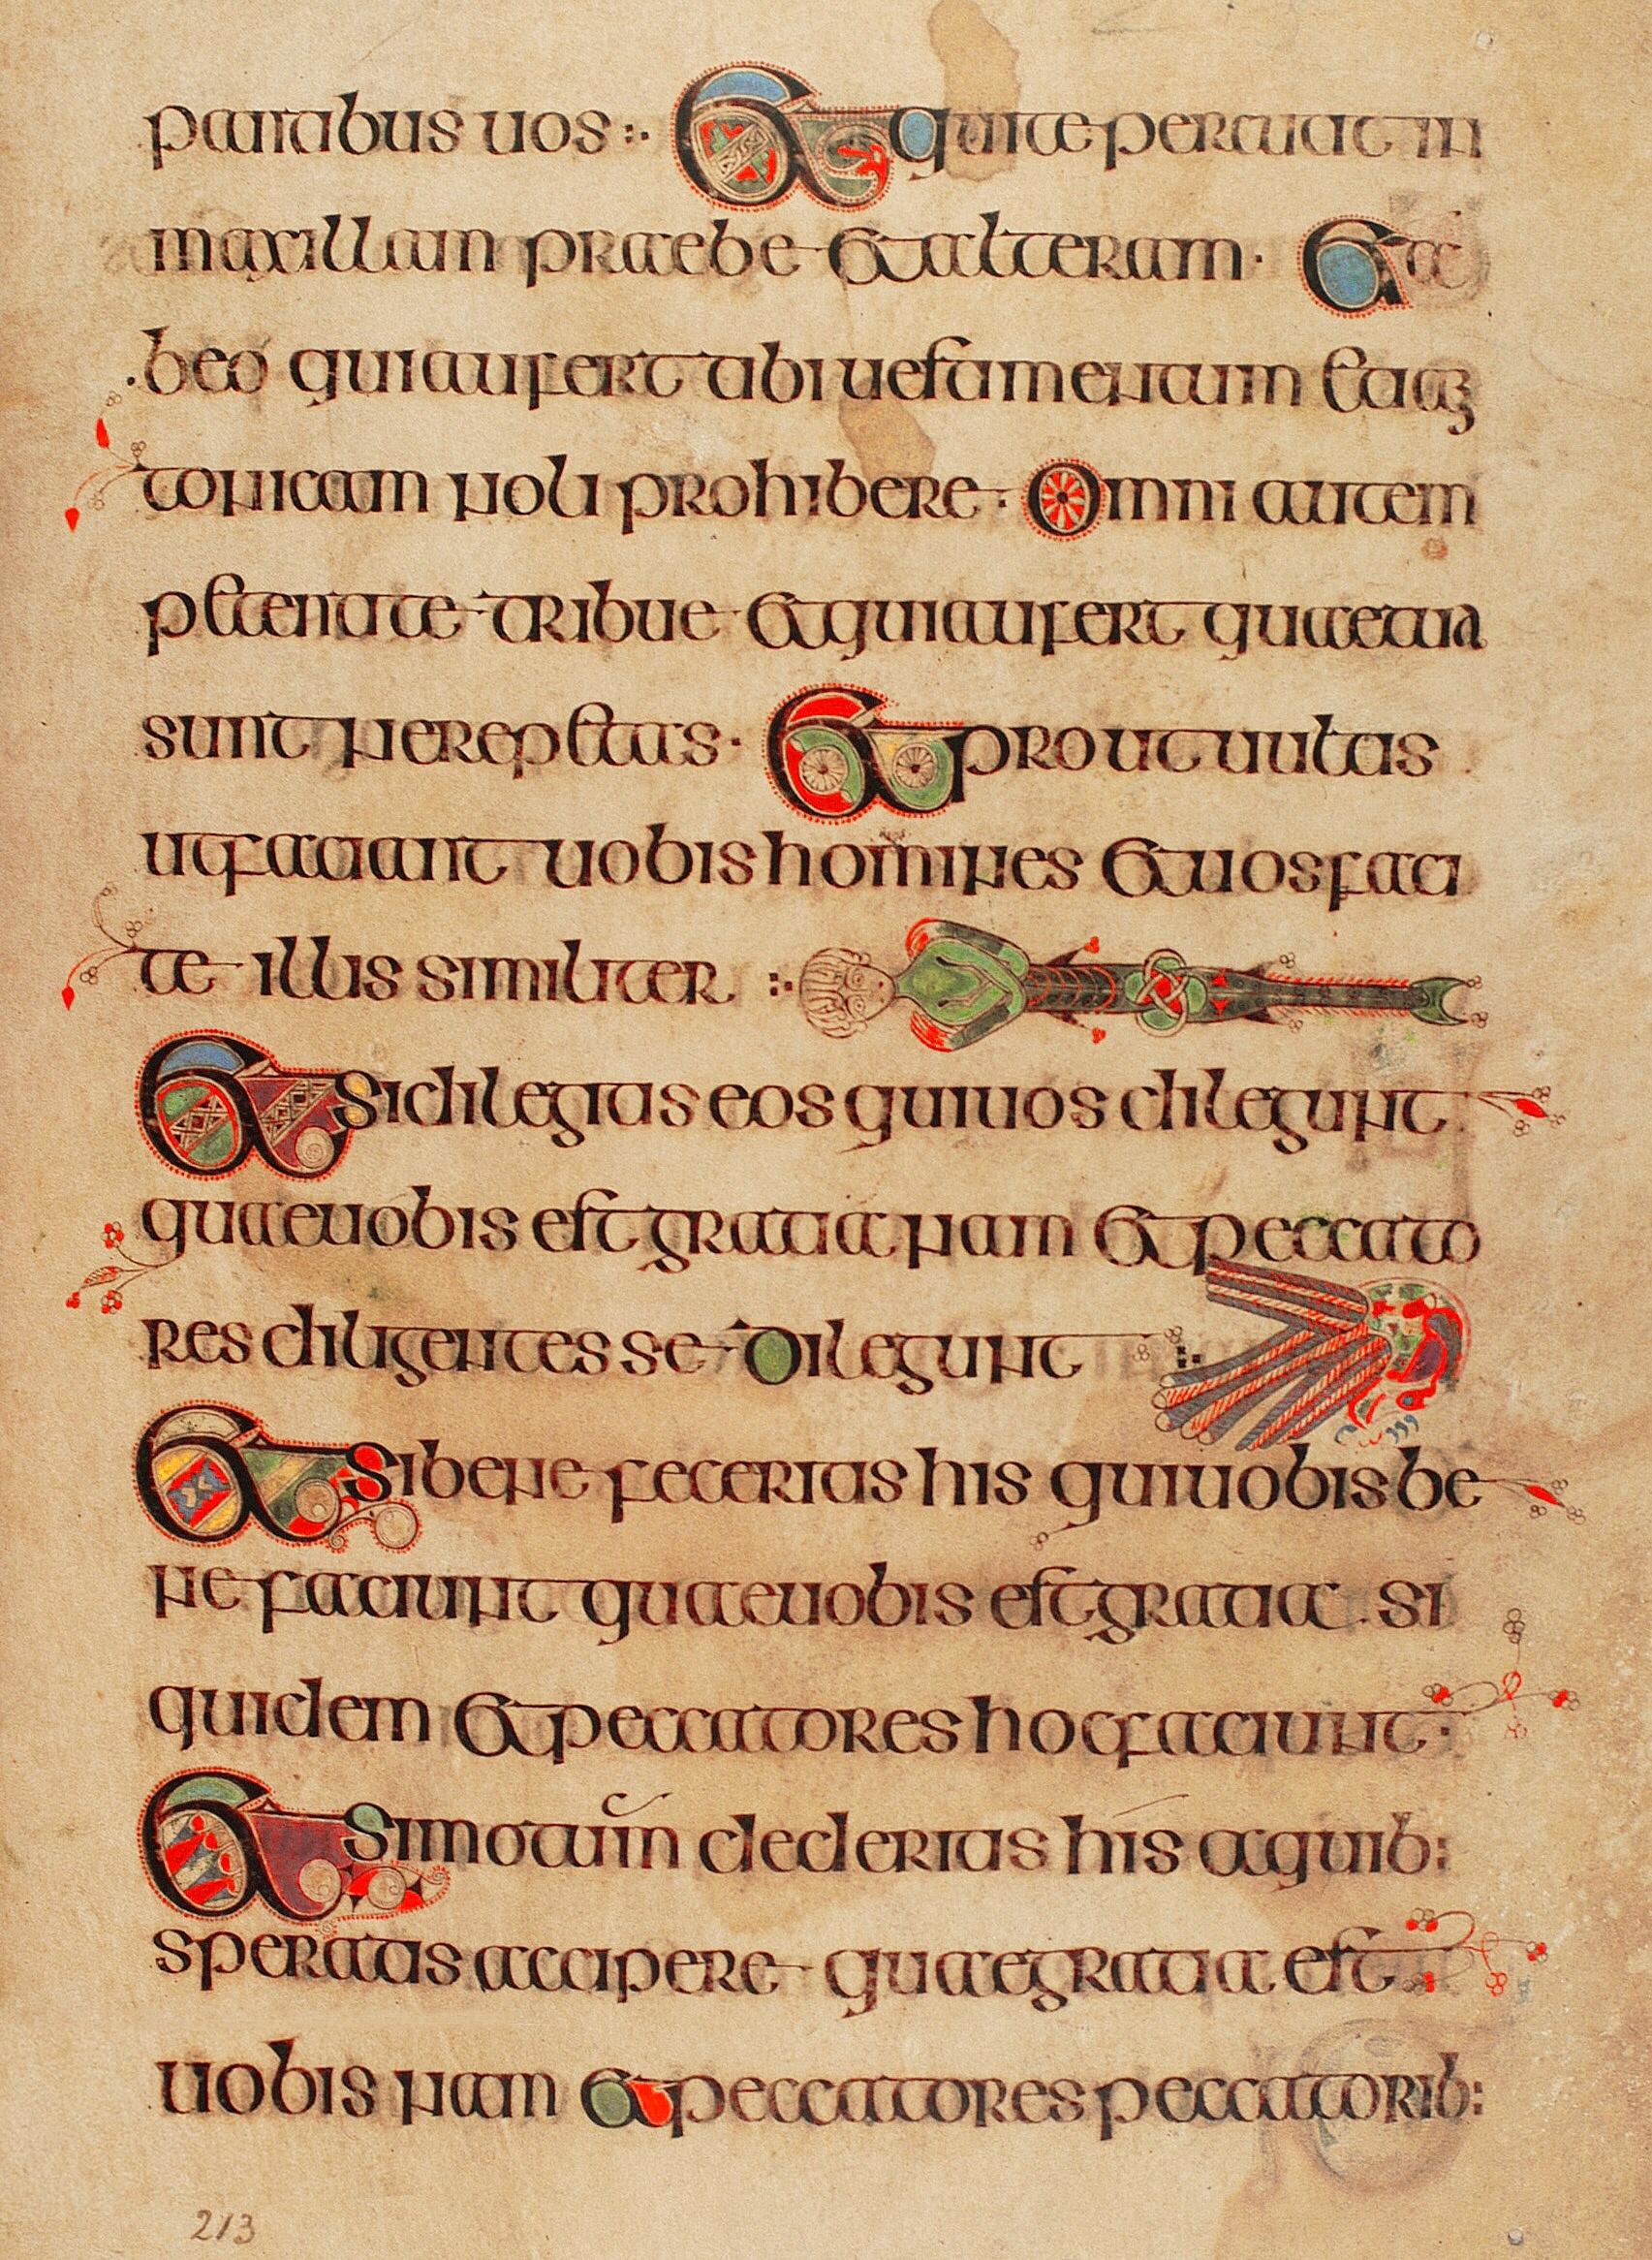 uos :· Et qui te percutit in
maxillam praebe et alteram · Et a
b eo qui aufert tibi uestimentum etiam
tonicam noli prohibere · Omni autem
petenti te tribue et qui aufert quae tua
sunt ne repetas · Et prout uultis
ut faciant uobis homines et uos faci
te illis similiter :·
Et si dilegitis eos qui uos dilegunt
quae uobis est gratia nam et peccato
res diligentes se dilegunt :·
Et si bene feceritis his qui uobis be
ne faciunt quae uobis est gratia si
quidem et peccatores hoc faciunt ·
Et si motuum dederitis his a quib:
speratis accipere quae gratia est
uobis nam et peccatores peccatorib:
213